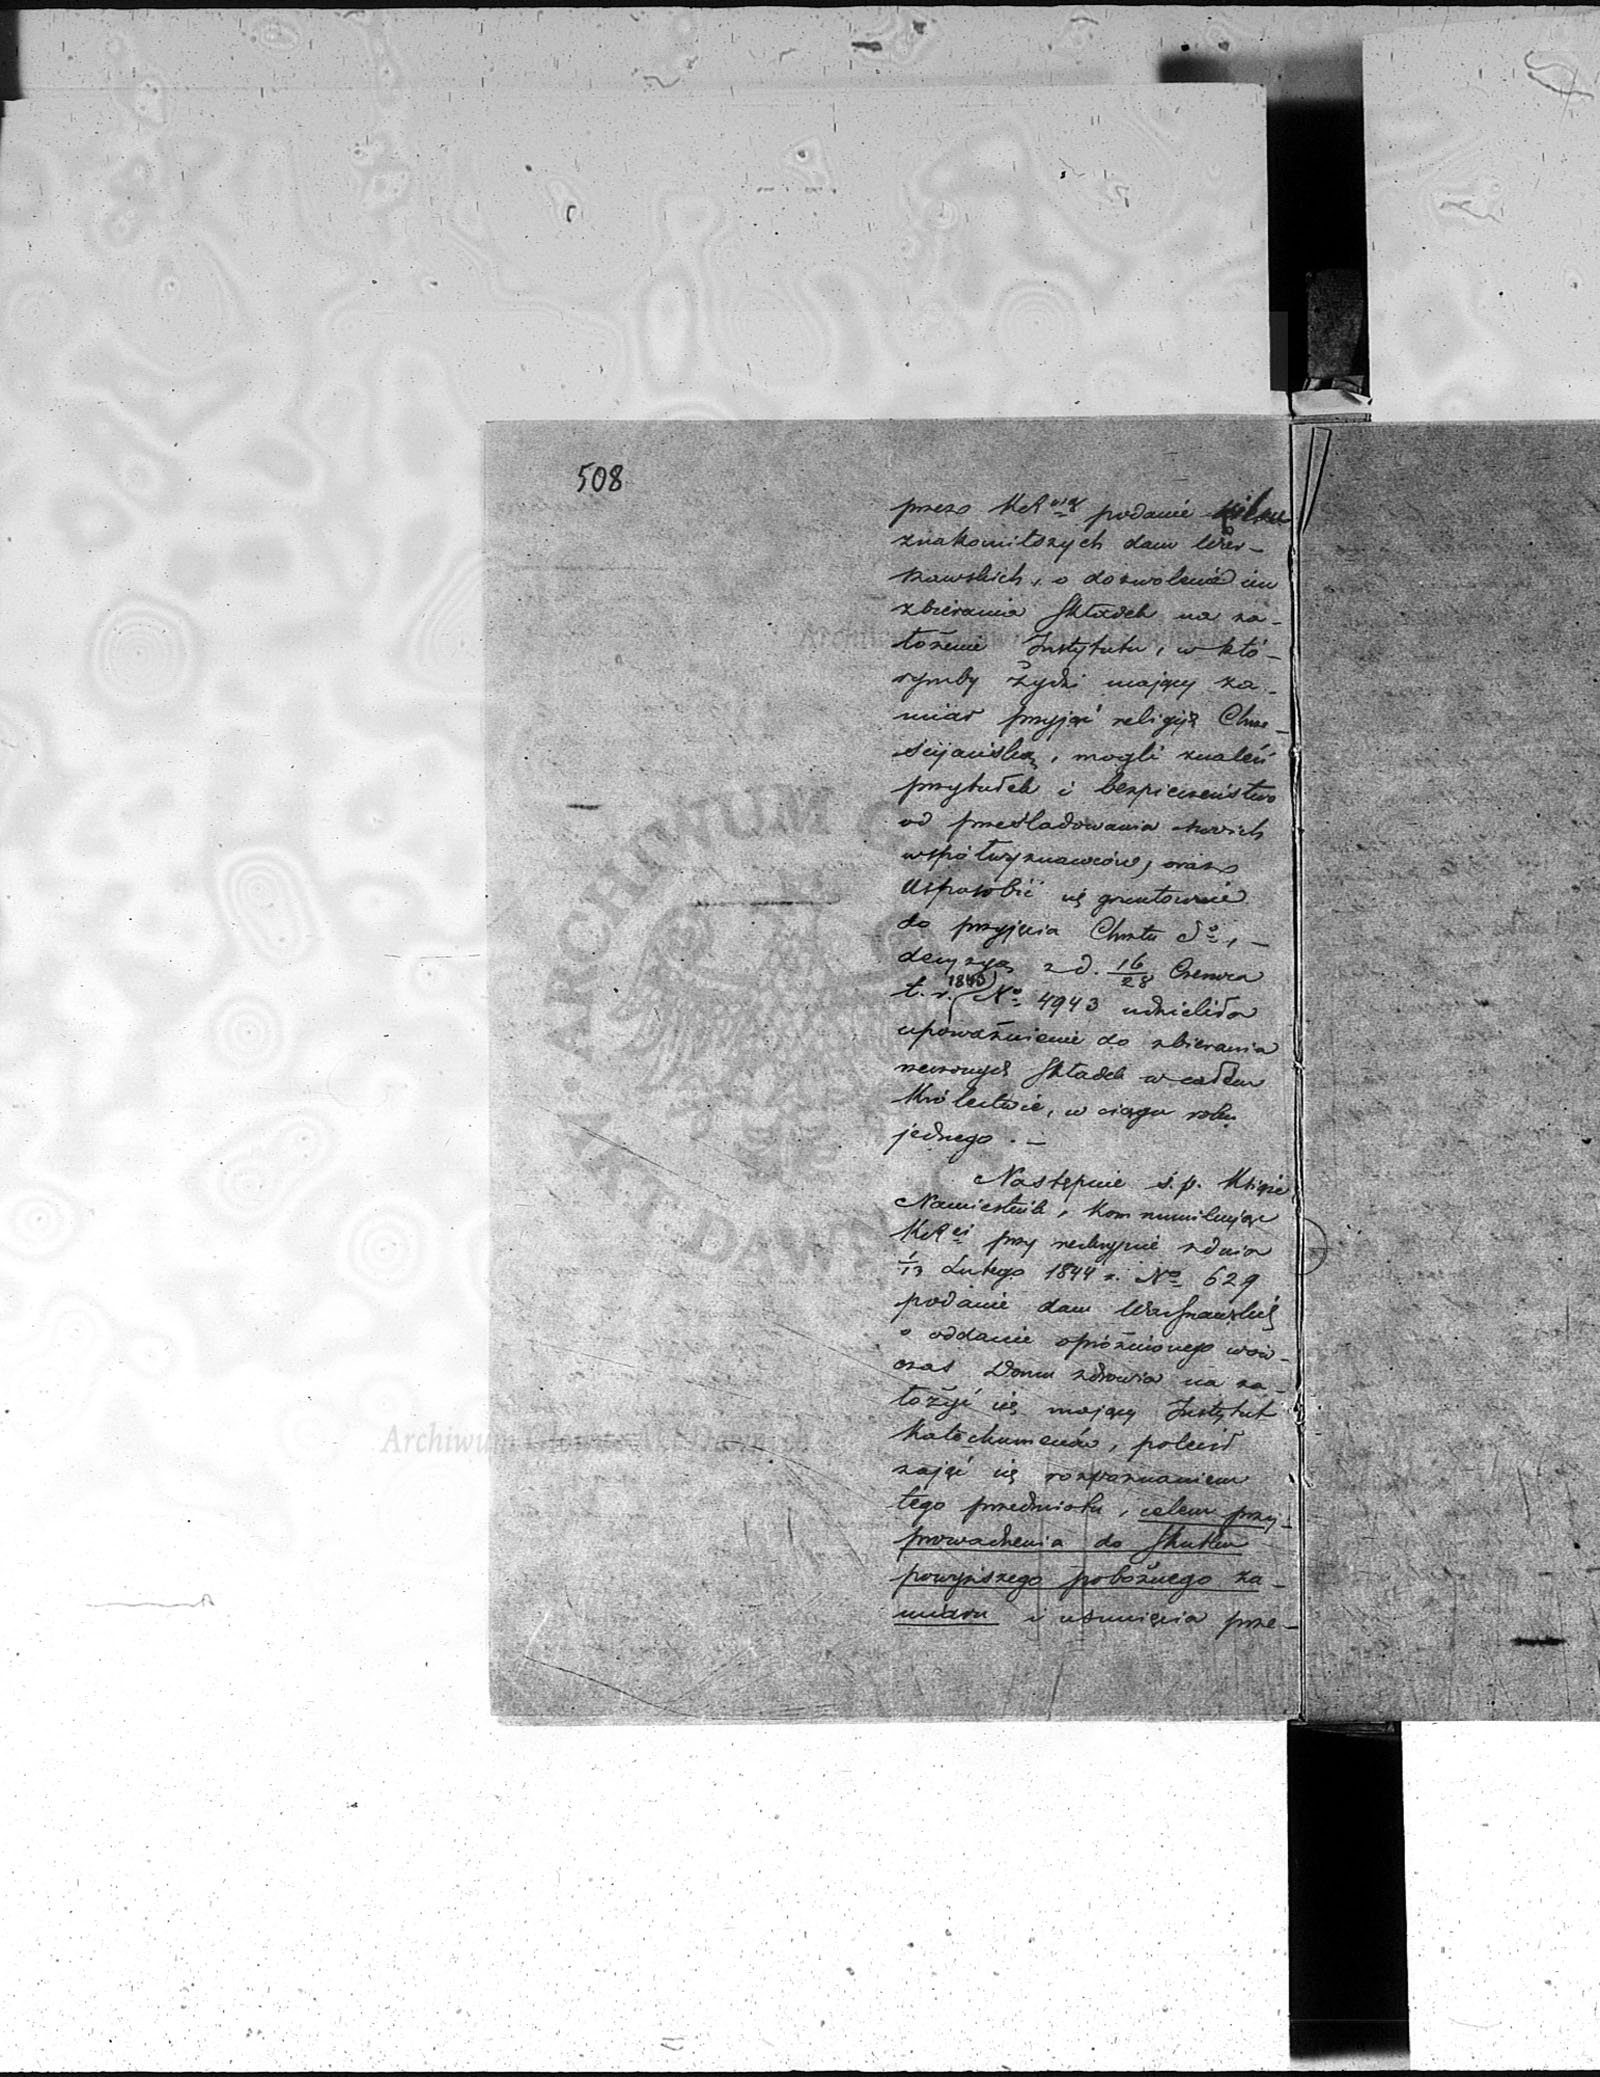 508
przez KR podanie kilku
znakomitszych dam War-
szawskich, o dozwolenie im
zbierania Składek na za-
łożenie Instytutu, w któ-
rymby Żydzi mający za-
miar przyjąć religiją Chrze-
ścijańską, mogli znaleść
przytułek i bezpieczeństwo
od prześladowania swoich
współwyznawców, oraz
usposobić się gruntownie
do przyjęcia Chrztu So, —
decyzyą z d. 16/28 Czerwca
t. r. (1843) No 4943 udzieliła
upoważnienie do zbierania
rzeczonych Składek w całem
Królestwie, w ciągu roku
jednego. —
Następnie ś. p. Książe
Namiestnik, kommunikując
KRei przy reskrypcie z dnia
1/13 Lutego 1844 r. No 629
podanie dam Warszawskich
o oddanie opróżnionego wów-
czas Domu zdrowia na za-
łożyć się mający Instytut
Katechumenów, polecił
zająć się rozpoznaniem
tego przedmiotu, celem przy-
prowadzenia do skutku
powyższego pobożnego za-
miaru i usunięcia prze-
Archiwum Główne Akt Dawnych
ARCHIWUM G
AKT DAWN